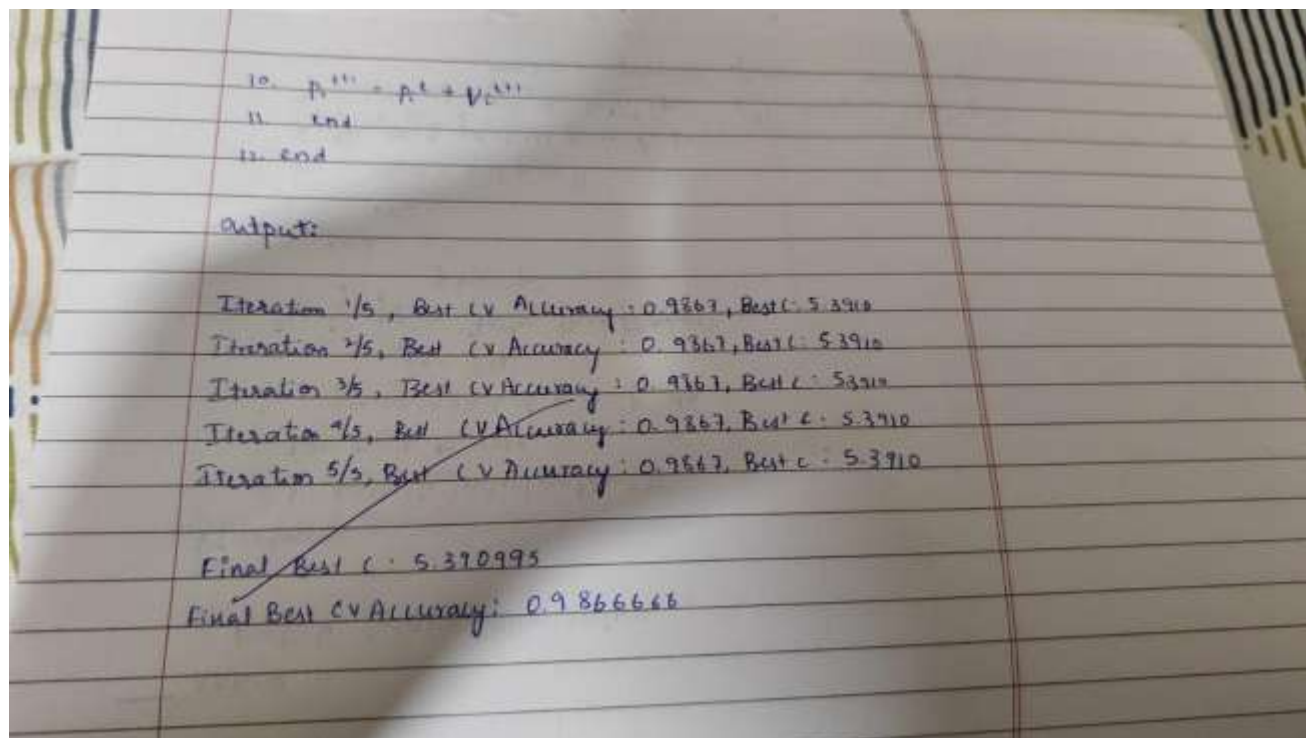 10. Pi^t+1 = Pi^t + Vi^t+1
11. end
12. end
Output:
Iteration 1/5, Best CV Accuracy: 0.9867, Best C: 5.3910
Iteration 2/5, Best CV Accuracy: 0.9867, Best C: 5.3910
Iteration 3/5, Best CV Accuracy: 0.9867, Best C: 5.3910
Iteration 4/5, Best CV Accuracy: 0.9867, Best C: 5.3910
Iteration 5/5, Best CV Accuracy: 0.9867, Best C: 5.3910
Final Best C: 5.390995
Final Best CV Accuracy: 0.9866666